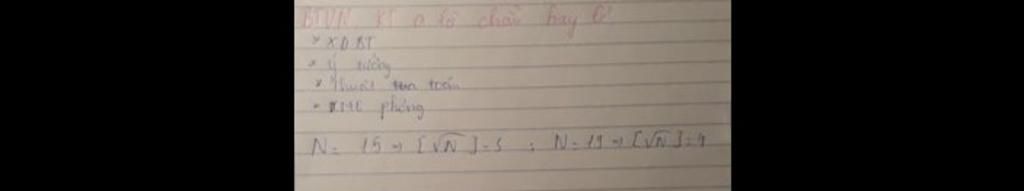 BTVN KT a là chẵn hay lẻ
* XĐBT
* Ý tưởng
* Thuật toán
* Mô phỏng
N = 15 → [√N] = 3 ; N = 19 → [√N] = 4